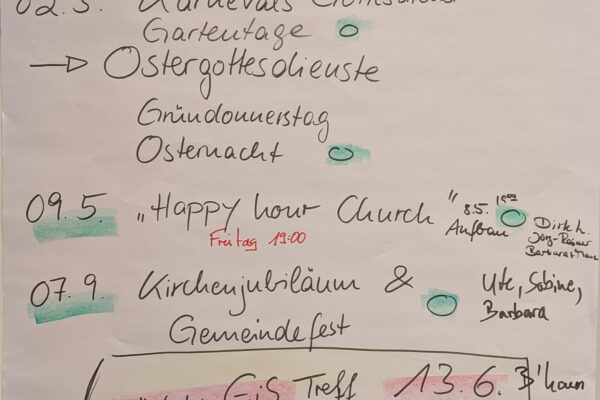 02.3. Karnevals Gottesdienst
Gartentage
Ostergottesdienste
Gründonnerstag
Osternacht
09.5. „Happy hour Church" 8.5. 19:00 Aufbau
Dirk h.
Jörg-Rainer
Barbara + Mann
Freitag 19:00
07.9. Kirchenjubiläum & Gemeindefest
Ute, Sabine,
Barbara
GiS Treff 13.6. B'haun